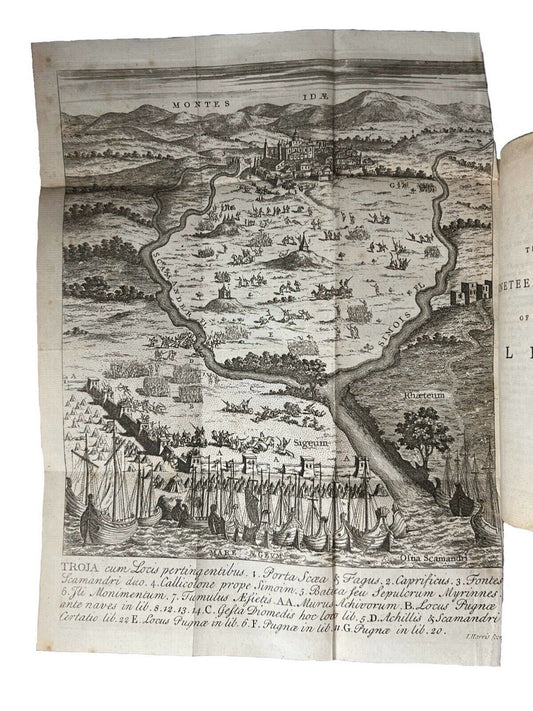 MONTES IDÆ
SCAMANDER
SIMOIS FL
Rhæteum
Sigeum
A A A A
B
MARE ÆGEVM
Oſtia Scamandri
TROIA cum Locis pertingentibus. 1. Porta Scæa & Fagus. 2. Caprificus. 3. Fontes
Scamandri duo. 4. Callicolone prope Simoim. 5. Batea ſeu Sepulcrum Myrinnes.
6. Ili Monimentum. 7. Tumulus Æſietis. AA. Murus Achivorum. B. Locus Pugnæ
ante naves in lib. 8. 12. 13. 14. C. Geſta Diomedis hoc loco lib. 5. D. Achillis & Scamandri
Certatio lib. 22 E. Locus Pugnæ in lib. 6. F. Pugnæ in lib. 11. G. Pugnæ in lib. 20.
I. Harris
OF